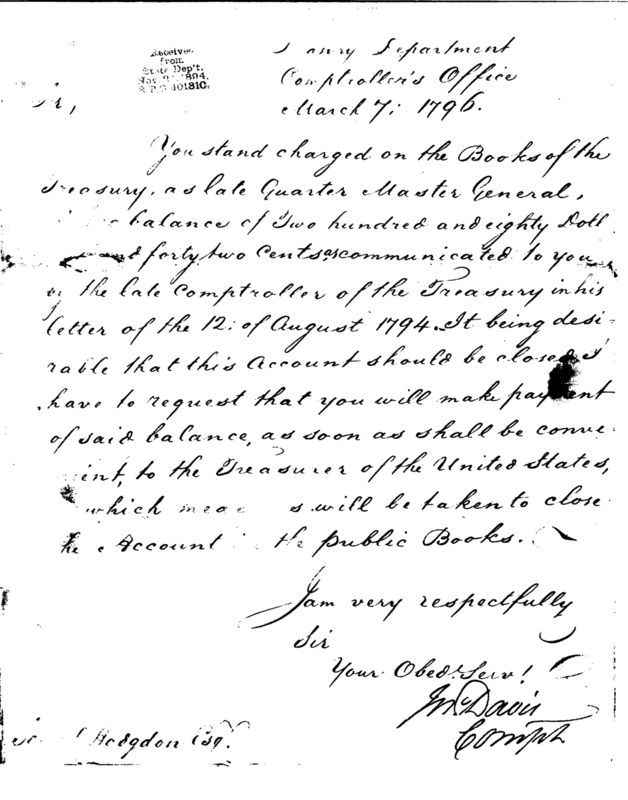 Received
from
State Dep't.
1894.
Department
Comptroller's Office
March 7; 1796.
You stand charged on the Books of the
Treasury, as late Quarter Master General,
balance of Two hundred and eighty Doll
forty two Cents as communicated to you
the late Comptroller of the Treasury in his
letter of the 12: of August 1794. It being desi-
rable that this Account should be closed I
have to request that you will make payment
of said balance, as soon as shall be conve-
ient, to the Treasurer of the United States,
which s will be taken to close
he Account the public Books.
I am very respectfully
Sir
Your Obed. Serv!
Jno Davis
Compt
Hodgdon Esq.